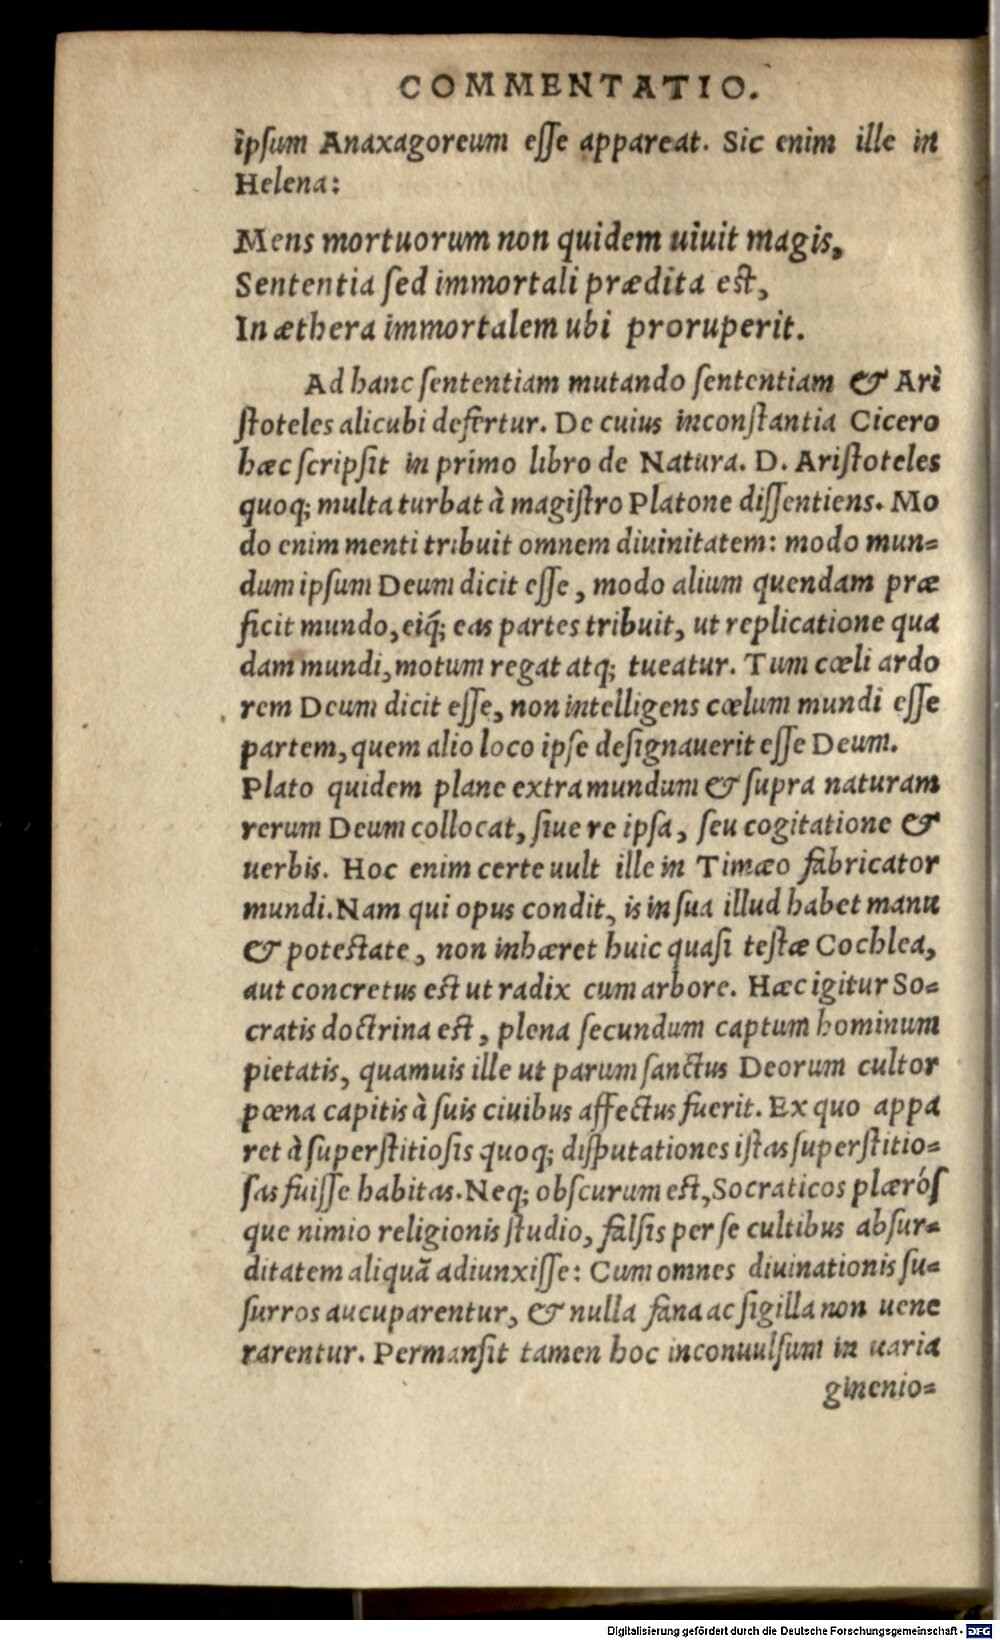 COMMENTATIO.
ipſum Anaxagoreum eſſe appareat. Sic enim ille in
Helena:
Mens mortuorum non quidem uiuit magis,
Sententia ſed immortali prædita est,
In æthera immortalem ubi proruperit.
Ad hanc ſententiam mutando ſententiam & Ari
ſtoteles alicubi defertur. De cuius inconſtantia Cicero
hæc ſcripſit in primo libro de Natura. D. Ariſtoteles
quoq; multa turbat à magiſtro Platone diſſentiens. Mo
do enim menti tribuit omnem diuinitatem: modo mun=
dum ipſum Deum dicit eſſe, modo alium quendam præ
ficit mundo, eiq́; eas partes tribuit, ut replicatione qua
dam mundi, motum regat atq; tueatur. Tum cœli ardo
rem Deum dicit eſſe, non intelligens cœlum mundi eſſe
partem, quem alio loco ipſe deſignauerit eſſe Deum.
Plato quidem plane extra mundum & ſupra naturam
rerum Deum collocat, ſiue re ipſa, ſeu cogitatione &
uerbis. Hoc enim certe uult ille in Timæo fabricator
mundi. Nam qui opus condit, is in ſua illud habet manu
& potestate, non inhæret huic quaſi teſtæ Cochlea,
aut concretus est ut radix cum arbore. Hæc igitur So=
cratis doctrina est, plena ſecundum captum hominum
pietatis, quamuis ille ut parum ſanctus Deorum cultor
pœna capitis à ſuis ciuibus affectus fuerit. Ex quo appa
ret à ſuperſtitioſis quoq; diſputationes iſtas ſuperſtitio=
ſas fuiſſe habitas. Neq; obſcurum est, Socraticos plæróſ
que nimio religionis ſtudio, falſis per ſe cultibus abſur=
ditatem aliquã adiunxiſſe: Cum omnes diuinationis ſu=
ſurros aucuparentur, & nulla fana ac ſigilla non uene
rarentur. Permanſit tamen hoc inconuulſum in uaria
ginenio=
Digitalisierung gefördert durch die Deutsche Forschungsgemeinschaft - DFG